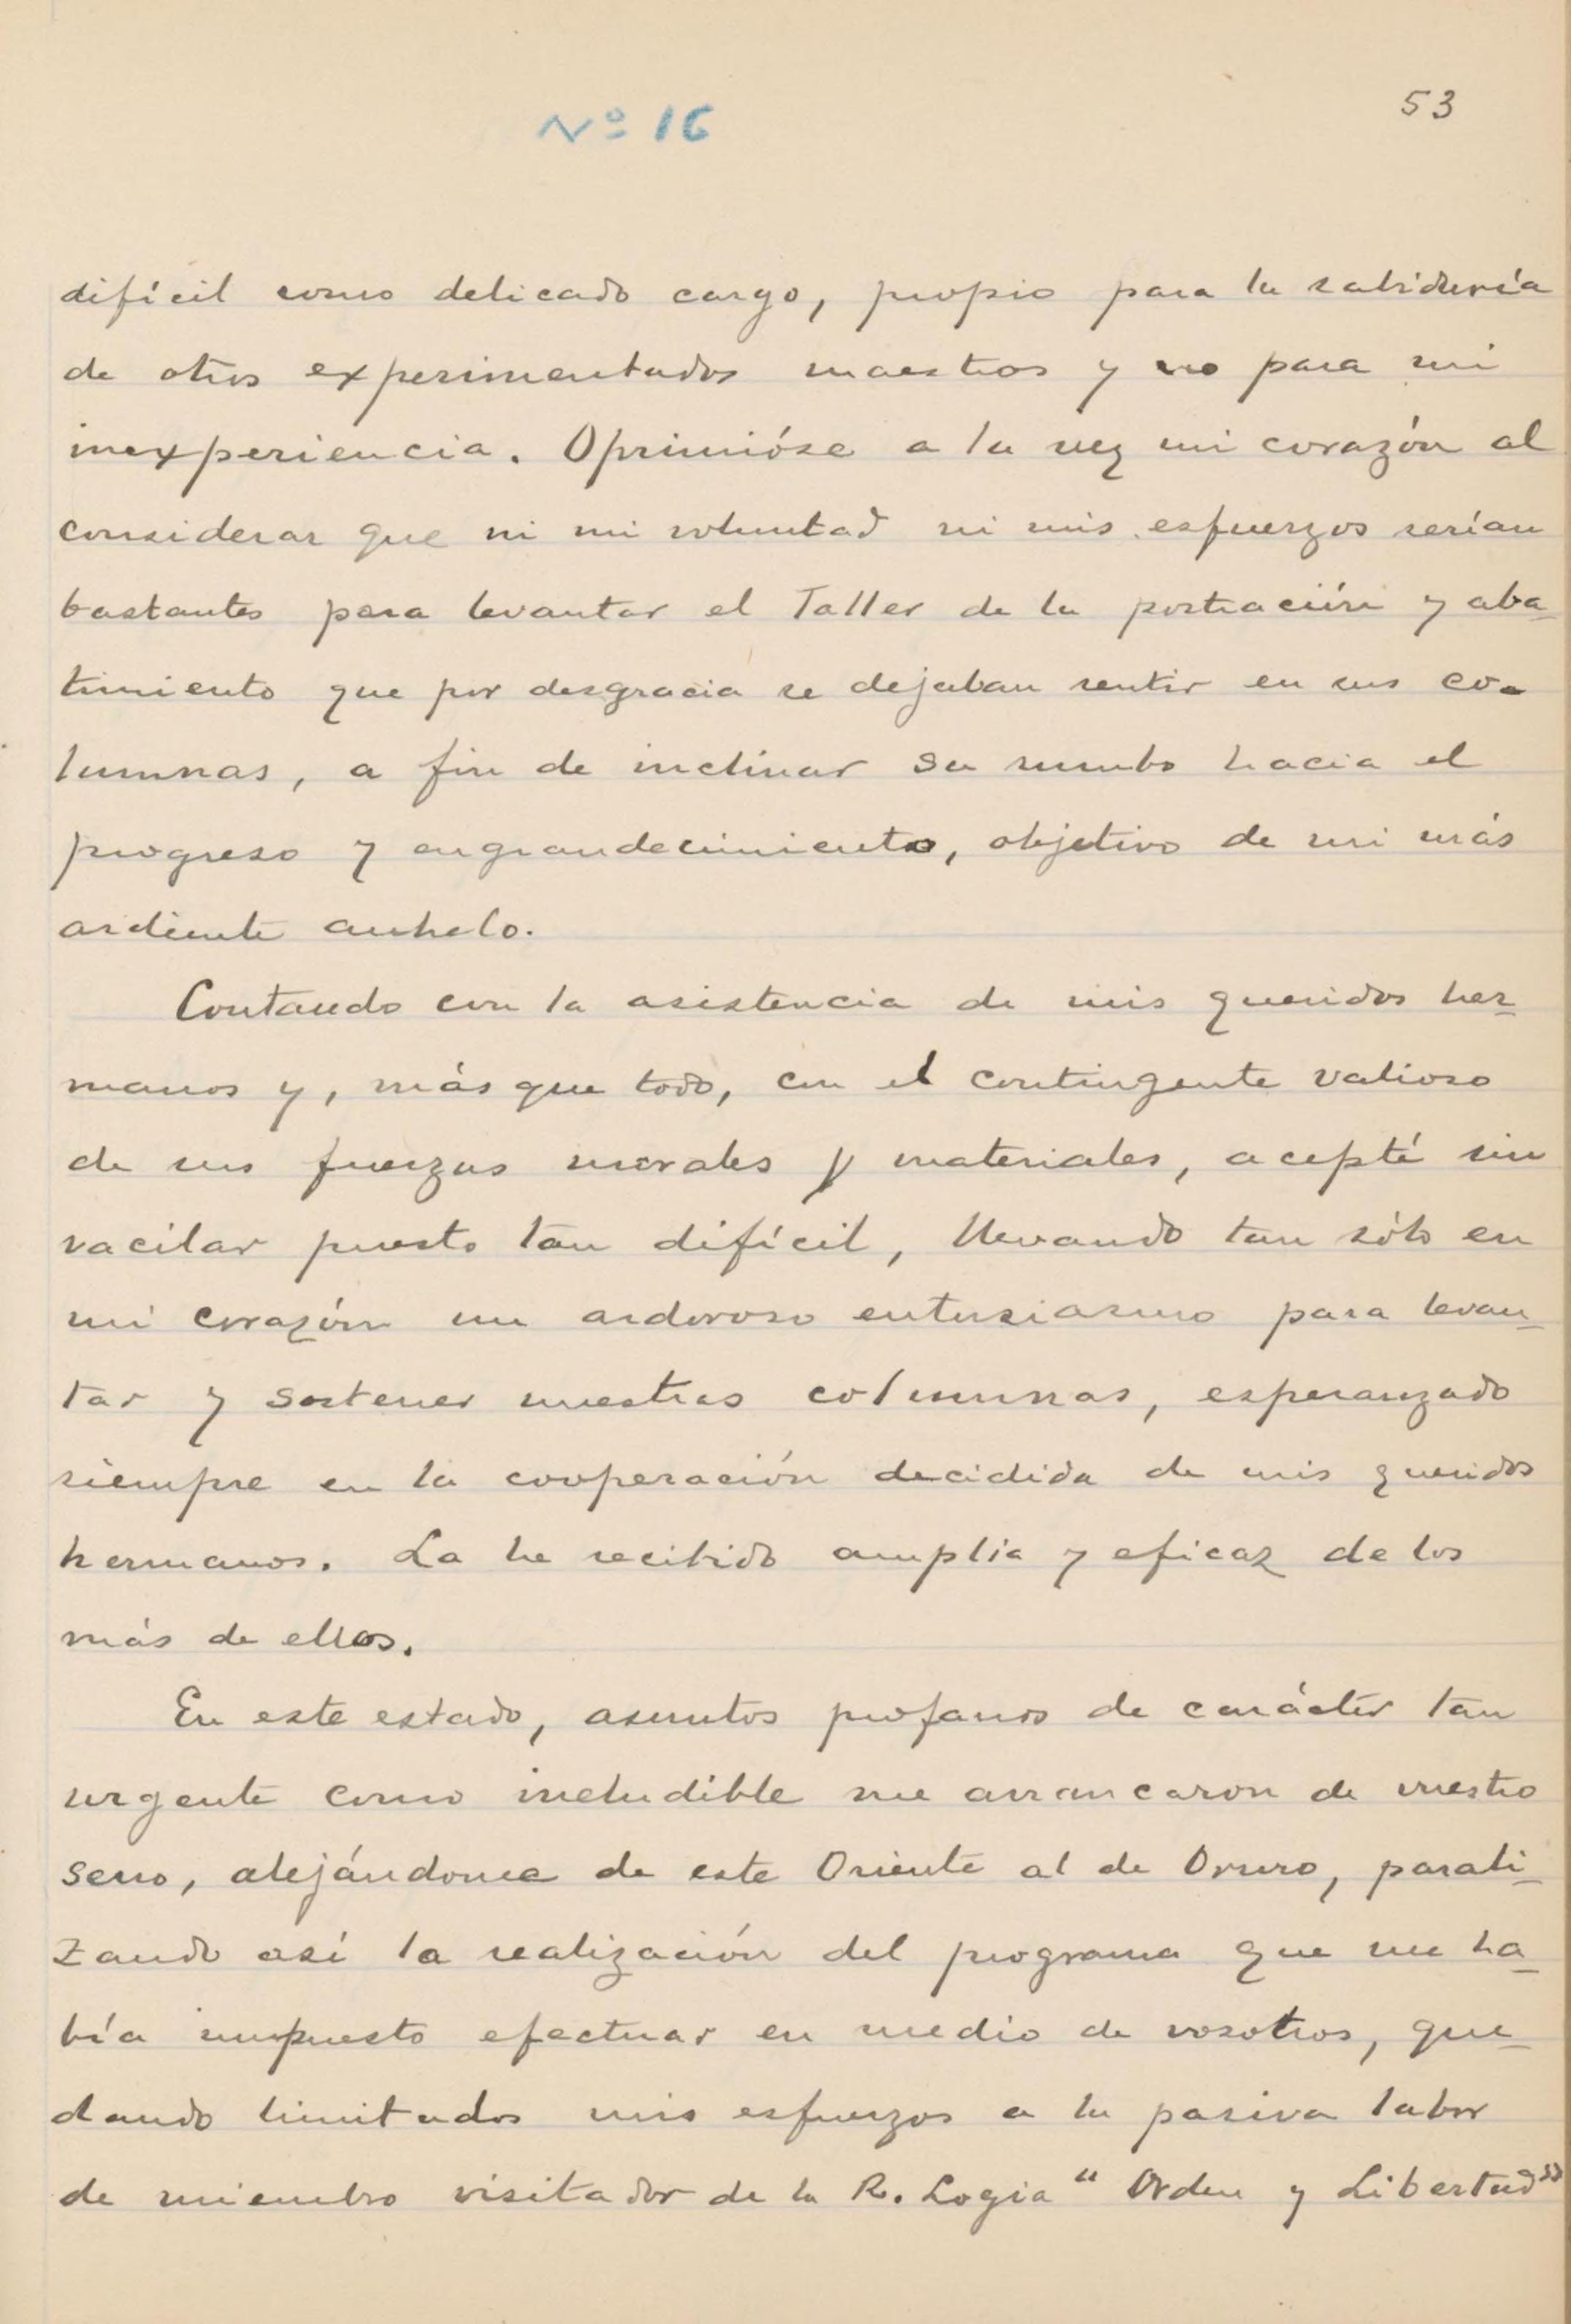 Nº 16
53
difícil como delicado cargo, propio para la sabiduría
de otros experimentados maestros y no para mi
inexperiencia. Oprimióse a la vez mi corazón al
considerar que ni mi voluntad ni mis esfuerzos serían
bastantes para levantar el Taller de la postración y aba-
timiento que por desgracia se dejaban sentir en sus co-
lumnas, a fin de inclinar su rumbo hacia el
progreso y engrandecimiento, objetivo de mi más
ardiente anhelo.
Contando con la asistencia de mis queridos her-
manos y, más que todo, con el contingente valioso
de sus fuerzas morales y materiales, acepté sin
vacilar puesto tan difícil, llevando tan sólo en
mi corazón un ardoroso entusiasmo para levan-
tar y sostener nuestras columnas, esperanzado
siempre en la cooperación decidida de mis queridos
hermanos. La he recibido amplia y eficaz de los
más de ellos.
En este estado, asuntos profanos de carácter tan
urgente como ineludible me arrancaron de vuestro
seno, alejándome de este Oriente al de Oruro, parali-
zando así la realización del programa que me ha-
bía impuesto efectuar en medio de vosotros, que-
dando limitados mis esfuerzos a la pasiva labor
de miembro visitador de la R. Logia "Orden y Libertad"